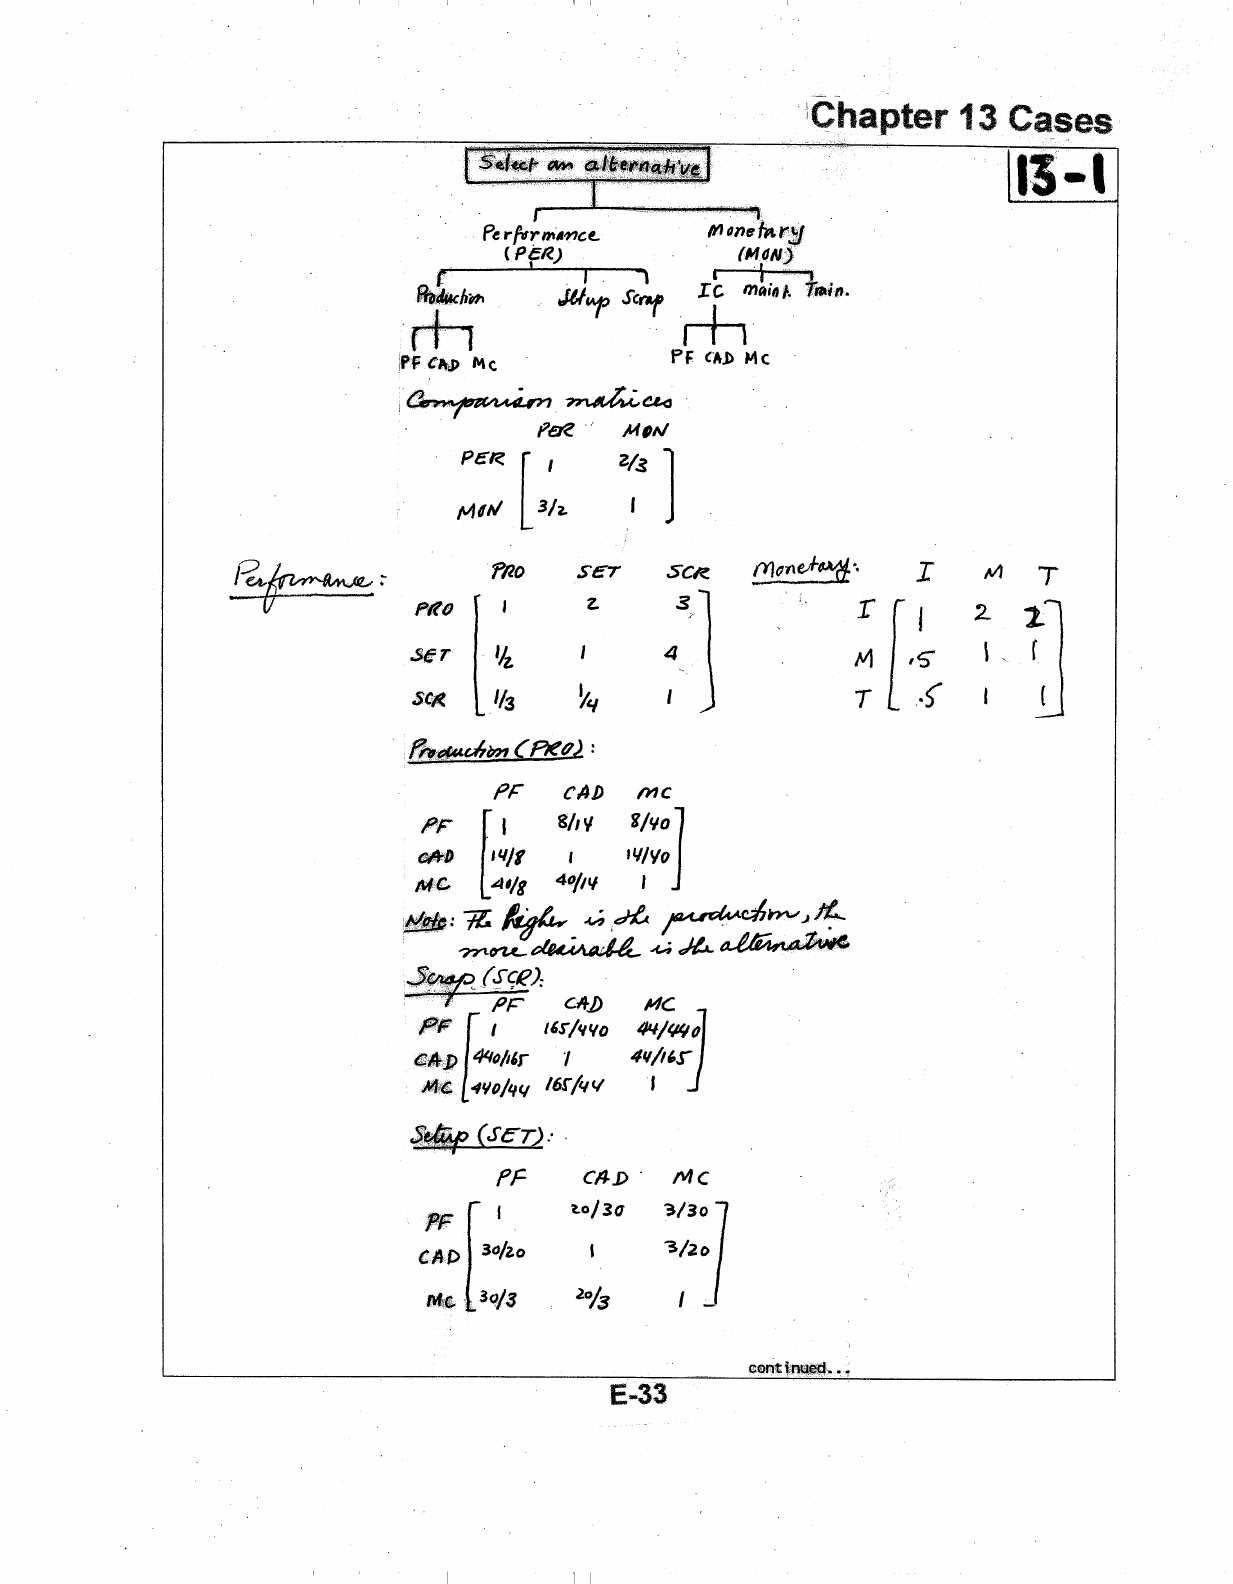 Chapter 13 Cases
13-1
Select an alternative
Performance Monetary
(PER) (MON)
Production Setup Scrap IC maint. Train.
PF CAD MC PF CAD MC
Comparison matrices
PER MON
PER 1 2/3
MON 3/2 1
Performance: PRO SET SCR Monetary: I M T
PRO 1 2 3 I 1 2 2
SET 1/2 1 4 M .5 1 1
SCR 1/3 1/4 1 T .5 1 1
Production (PRO):
PF CAD MC
PF 1 8/14 8/40
CAD 14/8 1 14/40
MC 40/8 40/14 1
Note: The higher is the production, the
more desirable is the alternative
Scrap (SCR):
PF CAD MC
PF 1 165/440 44/440
CAD 440/165 1 44/165
MC 440/44 165/44 1
Setup (SET):
PF CAD MC
PF 1 20/30 3/30
CAD 30/20 1 3/20
MC 30/3 20/3 1
continued...
E-33